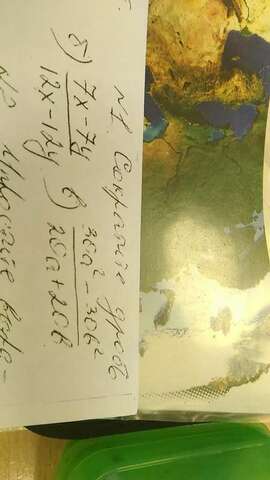 №1 Сократите дробь
б) 7x-7y/12x-12y в) 30a²-30b²/20a+20b
№2 Упростите выра-